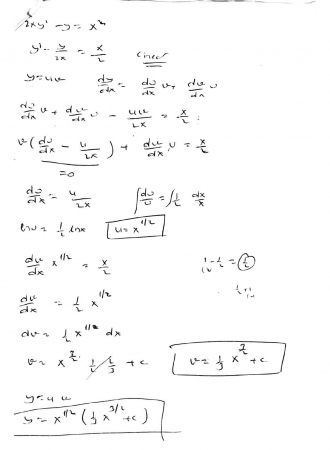 2xy' - y = x²
y' - y/2x = x/2 linear
y = uv dy/dx = du/dx v + dv/dx u
du/dx v + dv/dx u - uv/2x = x/2
v(du/dx - u/2x) + dv/dx u = x/2
=0
du/dx = u/2x ∫du/u = ∫1/2 dx/x
lnu = 1/2 lnx u = x^1/2
dv/dx x^1/2 = x/2
dv/dx = 1/2 x^1/2
dv = 1/2 x^1/2 dx
v = x^3/2 · 1/2 · 2/3 + c v = 1/3 x^3/2 + c
y = uv
y = x^1/2 (1/3 x^3/2 + c)